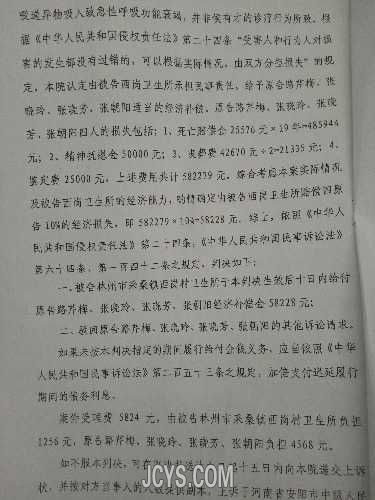 吸道异物吸入致急性呼吸功能衰竭，并非侯有才的诊疗行为所致。根
据《中华人民共和国侵权责任法》第二十四条"受害人和行为人对损
害的发生都没有过错的，可以根据实际情况，由双方分担损失"的规
定，本院认定由被告西岗卫生所承担民事责任，给予原告路芹梅、张
晓玲、张晓芳、张朝阳适当的经济补偿。原告路芹梅、张晓玲、张晓
芳、张朝阳四人的损失包括：1、死亡赔偿金 25576 元×19 年=485944
元；2、精神抚慰金 50000 元；3、丧葬费 42670 元÷2=21335 元；4、
鉴定费 25000 元，上述费用共计 582279 元。综合考虑本案实际情况
及被告西岗卫生所的经济能力，酌情确定由被告西岗卫生所赔偿四原
告 10%的经济损失，即 582279×10%=58228 元。综上，依照《中华人
民共和国侵权责任法》第二十四条，《中华人民共和国民事诉讼法》
第六十四条、第一百四十二条之规定，判决如下：
一、被告林州市采桑镇西岗村卫生所于本判决生效后十日内给付
原告路芹梅、张晓玲、张晓芳、张朝阳经济补偿金 58228 元；
二、驳回原告路芹梅、张晓玲、张晓芳、张朝阳的其他诉讼请求。
如果未按本判决指定的期间履行给付金钱义务，应当依照《中华
人民共和国民事诉讼法》第二百五十三条之规定，加倍支付迟延履行
期间的债务利息。
案件受理费 5824 元，由被告林州市采桑镇西岗村卫生所负担
1256 元，原告路芹梅、张晓玲、张晓芳、张朝阳负担 4568 元。
如不服本判决，可在 十五日内向本院递交上诉
状，并按对方当事人的人数提供副本，上诉于河南省安阳市中级人民
JCYS.COM